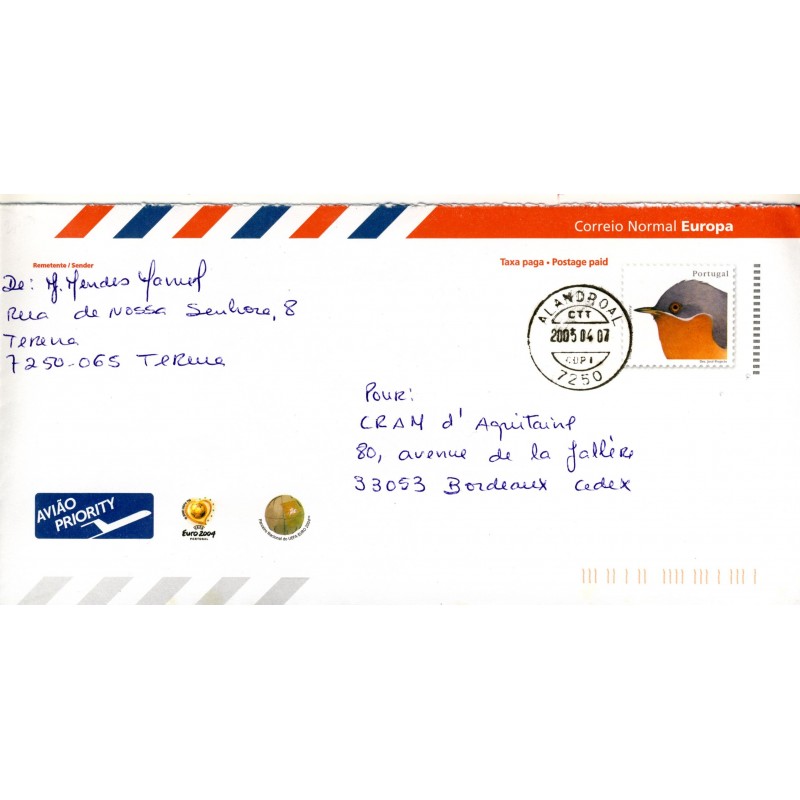 Correio Normal Europa
Remetente / Sender
Taxa paga • Postage paid
De: M. Mendes
Rua de Nossa Senhora, 8
Terena
7250-065 Terena
Portugal
ALANDROAL
CTT
2005 04 07
7250
Pour:
CRAM d'Aquitaine
80, avenue de la Jallère
33053 Bordeaux Cedex
AVIÃO
PRIORITY
UEFA
Euro 2004
PORTUGAL
Parceiro Nacional do UEFA EURO 2004™